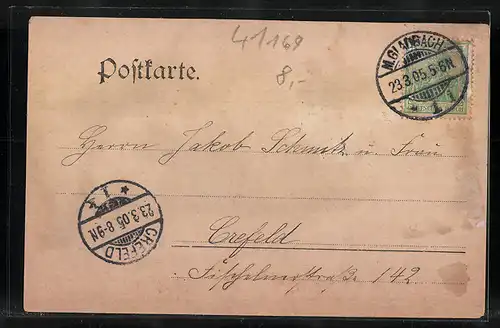 41169
8,-
Postkarte.
M.GLADBACH
23.3.05.5-6N
* 1 i
Herrn Jakob Schmitz u Frau
* 1 *
23.3.05.8-9N
CREFELD
Crefeld
Fischelnerstraße 142